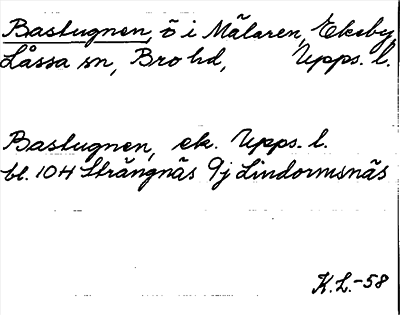 Bastugnen, ö i Mälaren, Eksby,
Låssa sn, Bro hd, Upps. l.
Bastugnen, ek. Upps. l.
bl. 104 Strängnäs 9j Lindormsnäs
K.L.-58